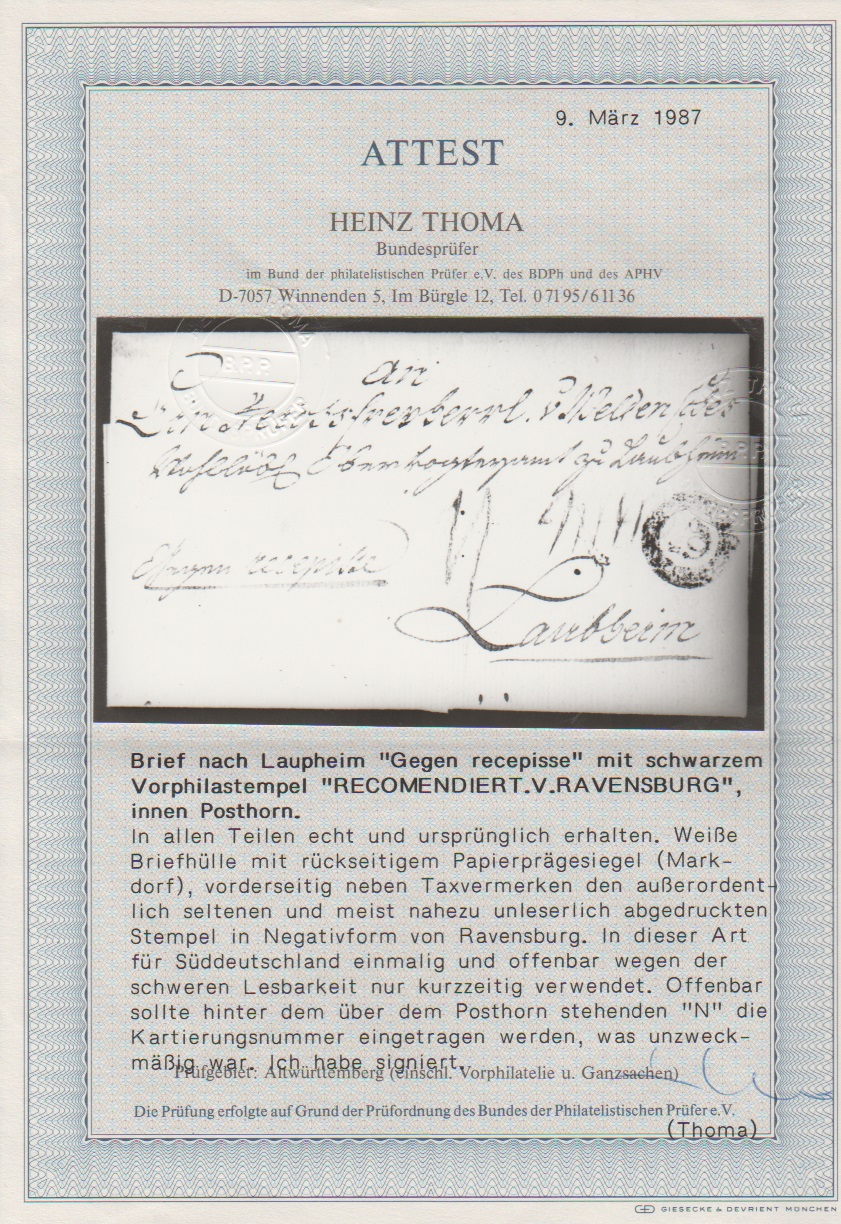 9. März 1987
ATTEST
HEINZ THOMA
Bundesprüfer
im Bund der philatelistischen Prüfer e.V. des BDPh und des APHV
D-7057 Winnenden 5, Im Bürgle 12, Tel. 0 71 95/6 11 36
B.P.P.
an
v Welden
zu Laubheim
Gegen recepisse
Laubheim
Brief nach Laupheim "Gegen recepisse" mit schwarzem
Vorphilastempel "RECOMENDIERT.V.RAVENSBURG",
innen Posthorn.
In allen Teilen echt und ursprünglich erhalten. Weiße
Briefhülle mit rückseitigem Papierprägesiegel (Mark-
dorf), vorderseitig neben Taxvermerken den außerordent-
lich seltenen und meist nahezu unleserlich abgedruckten
Stempel in Negativform von Ravensburg. In dieser Art
für Süddeutschland einmalig und offenbar wegen der
schweren Lesbarkeit nur kurzzeitig verwendet. Offenbar
sollte hinter dem über dem Posthorn stehenden "N" die
Kartierungsnummer eingetragen werden, was unzweck-
mäßig war. Ich habe signiert.
Prüfgebiet: Altwürttemberg (einschl. Vorphilatelie u. Ganzsachen)
Die Prüfung erfolgte auf Grund der Prüfordnung des Bundes der Philatelistischen Prüfer e.V.
(Thoma)
GD GIESECKE & DEVRIENT MÜNCHEN